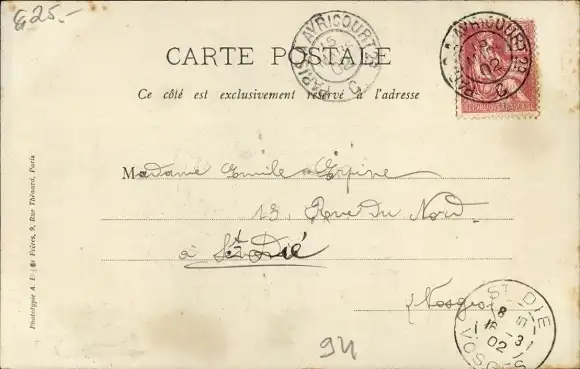 25.-
CARTE POSTALE
Ce côté est exclusivement réservé à l'adresse
PARIS A AVRICOURT
02
PARIS A AVRICOURT
02
Madame Emile
13, Rue du Nord
à St Dié
(Vosges)
ST DIE
16 3
02
VOSGES
94
Phototypie A. Frères, 9, Rue Thénard, Paris